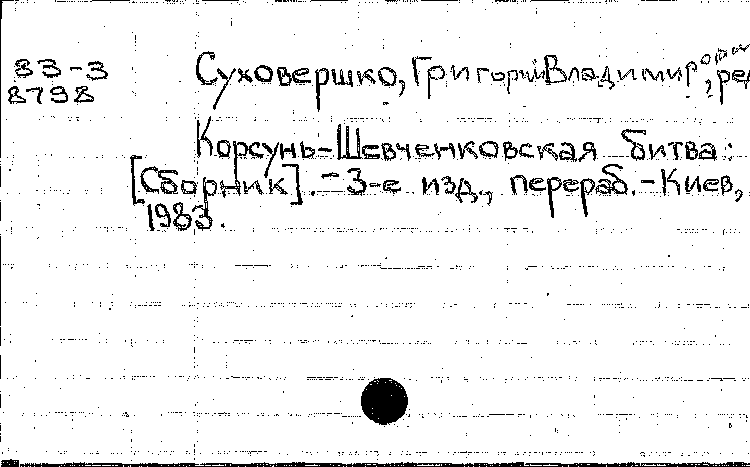 83-3 Суховершко, Григорий Владимирович, ред
8798
Корсунь-Шевченковская битва:
[Сборник]. - 3-е изд., перераб. - Киев,
1983.